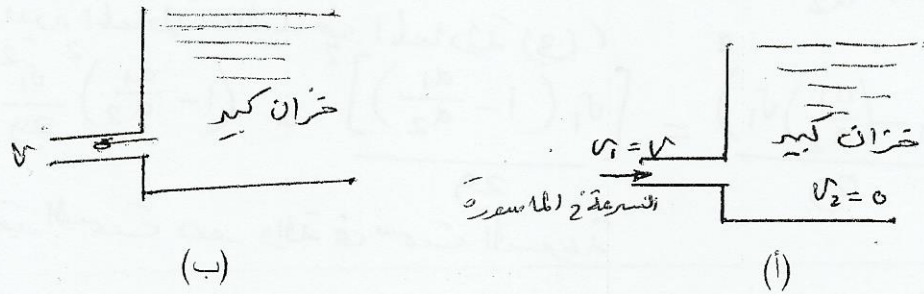 خزان كبير
خزان كبير
v₁ = v
v₂ = 0
السرعة في الماسورة
v
(أ)
(ب)